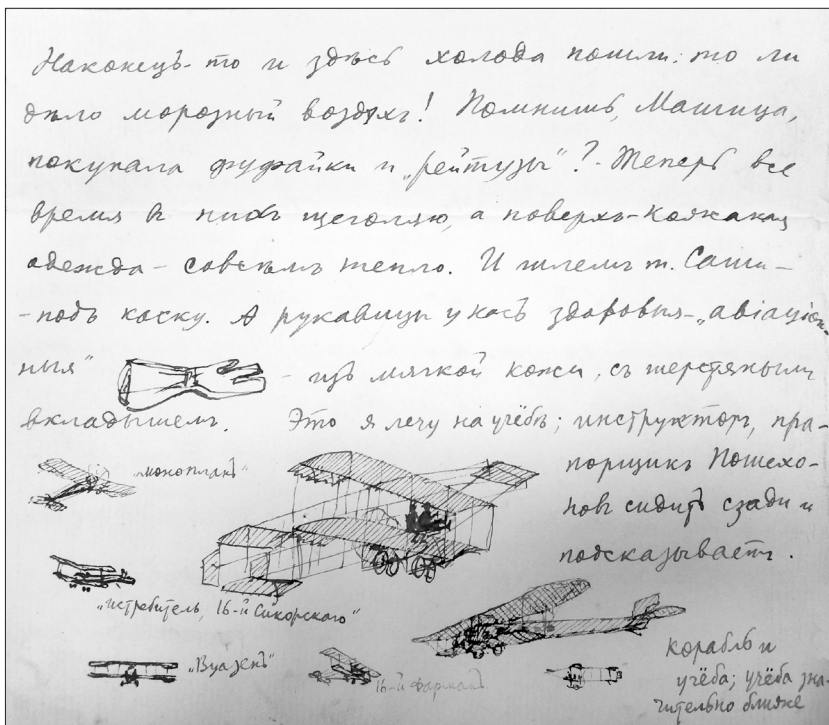 Наконецъ-то и здѣсь холода пошли; то ли
дѣло морозный воздухъ! Помнишь, Машица,
покупала фуфайки и „рейтузы“? - Теперь все
время в нихъ щеголяю, а поверхъ - кожаная
одежда - совсѣмъ тепло. И шлемъ т. Саши -
- подъ каску. А рукавицы у насъ здоровыя - „авіаціон-
ныя“ - изъ мягкой кожи, съ шерстянымъ
вкладышемъ. Это я лечу на учёбѣ; инструкторъ, пра-
порщикъ Пошехо-
новъ сидитъ сзади и
подсказываетъ.
„монопланъ“
„истребитель, 16-й Сикорскаго“
„Вуазенъ“
16-й Фарманъ
корабль и
учёба; учёба зна-
чительно ближе